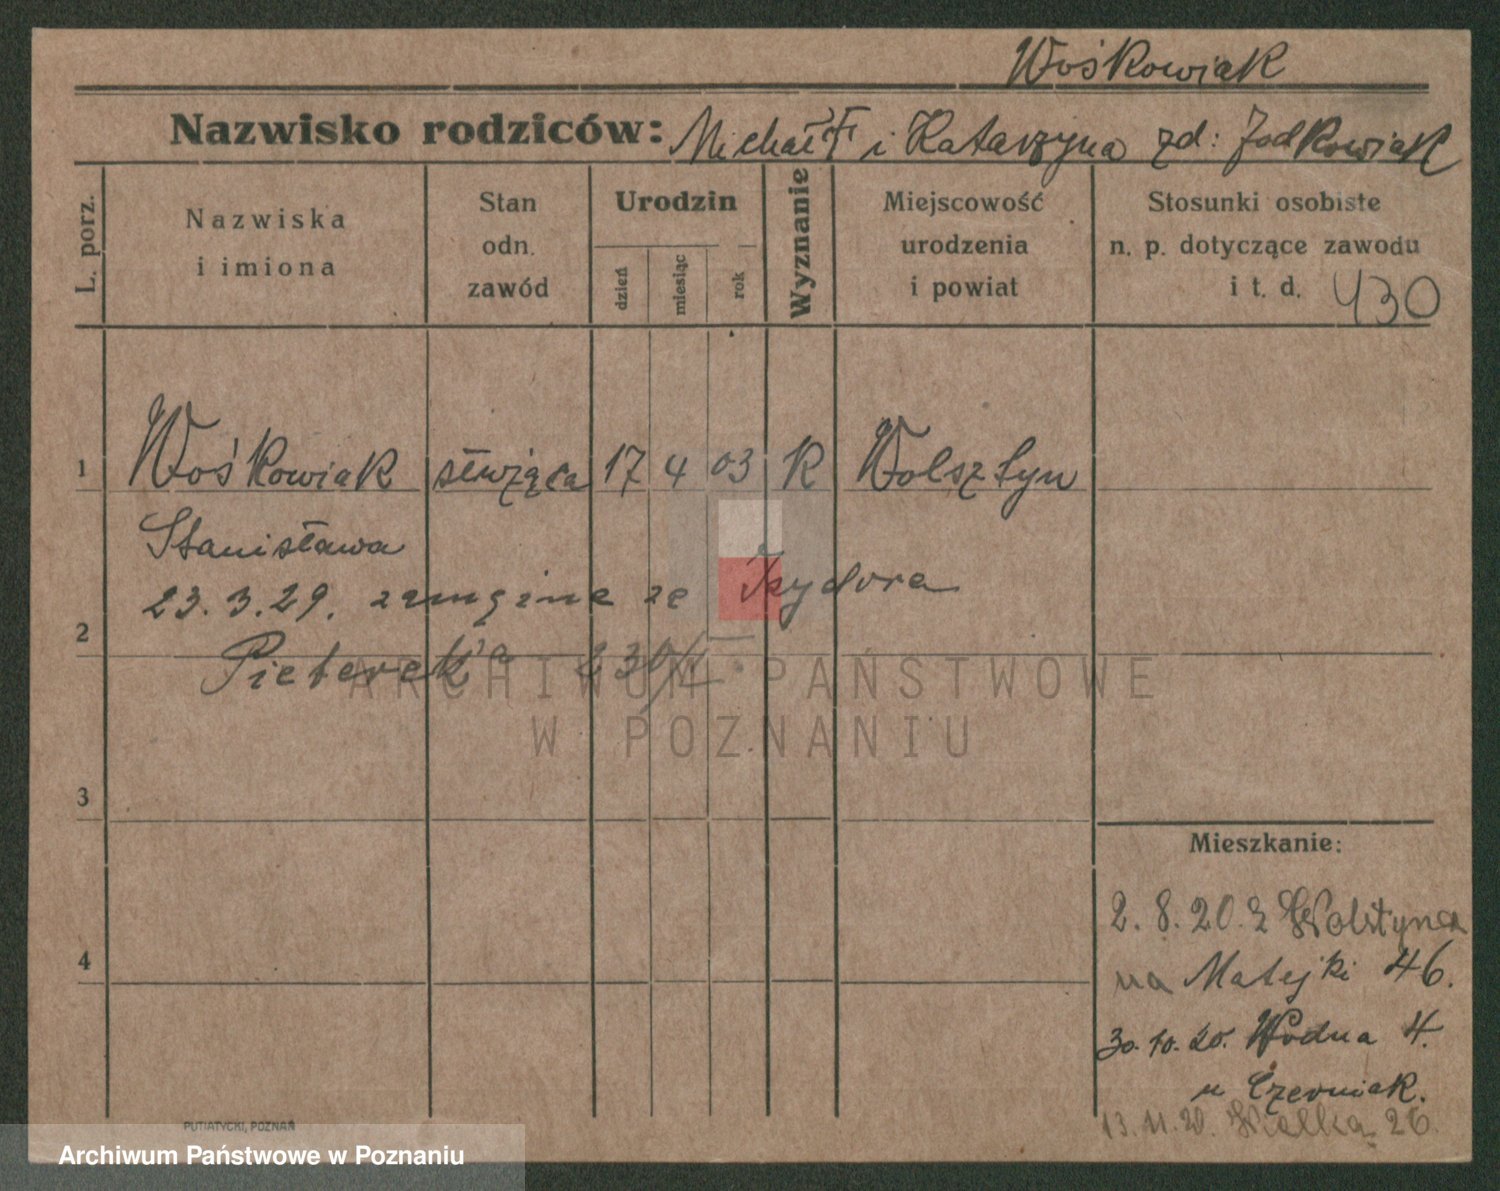 Wośkowiak
Nazwisko rodziców: Michał † i Katarzyna zd: Jodkowiak
L. porz.
Nazwiska
i imiona
Stan
odn.
zawód
Urodzin
dzień
miesiąc
rok
Wyznanie
Miejscowość
urodzenia
i powiat
Stosunki osobiste
n. p. dotyczące zawodu
i t. d. 430
1 Wośkowiak służąca 17 4 03 K Wolsztyn
Stanisława
23.3.29. za Izydora
2
Pieterek'a
ARCHIWUM PAŃSTWOWE
W POZNANIU
3
Mieszkanie:
2.8.20. z Wolsztyna
na Matejki 46.
4
30.10.20. Wodna 4.
u Czerniak.
13.11.20. 26.
PUTIATYCKI, POZNAŃ
Archiwum Państwowe w Poznaniu